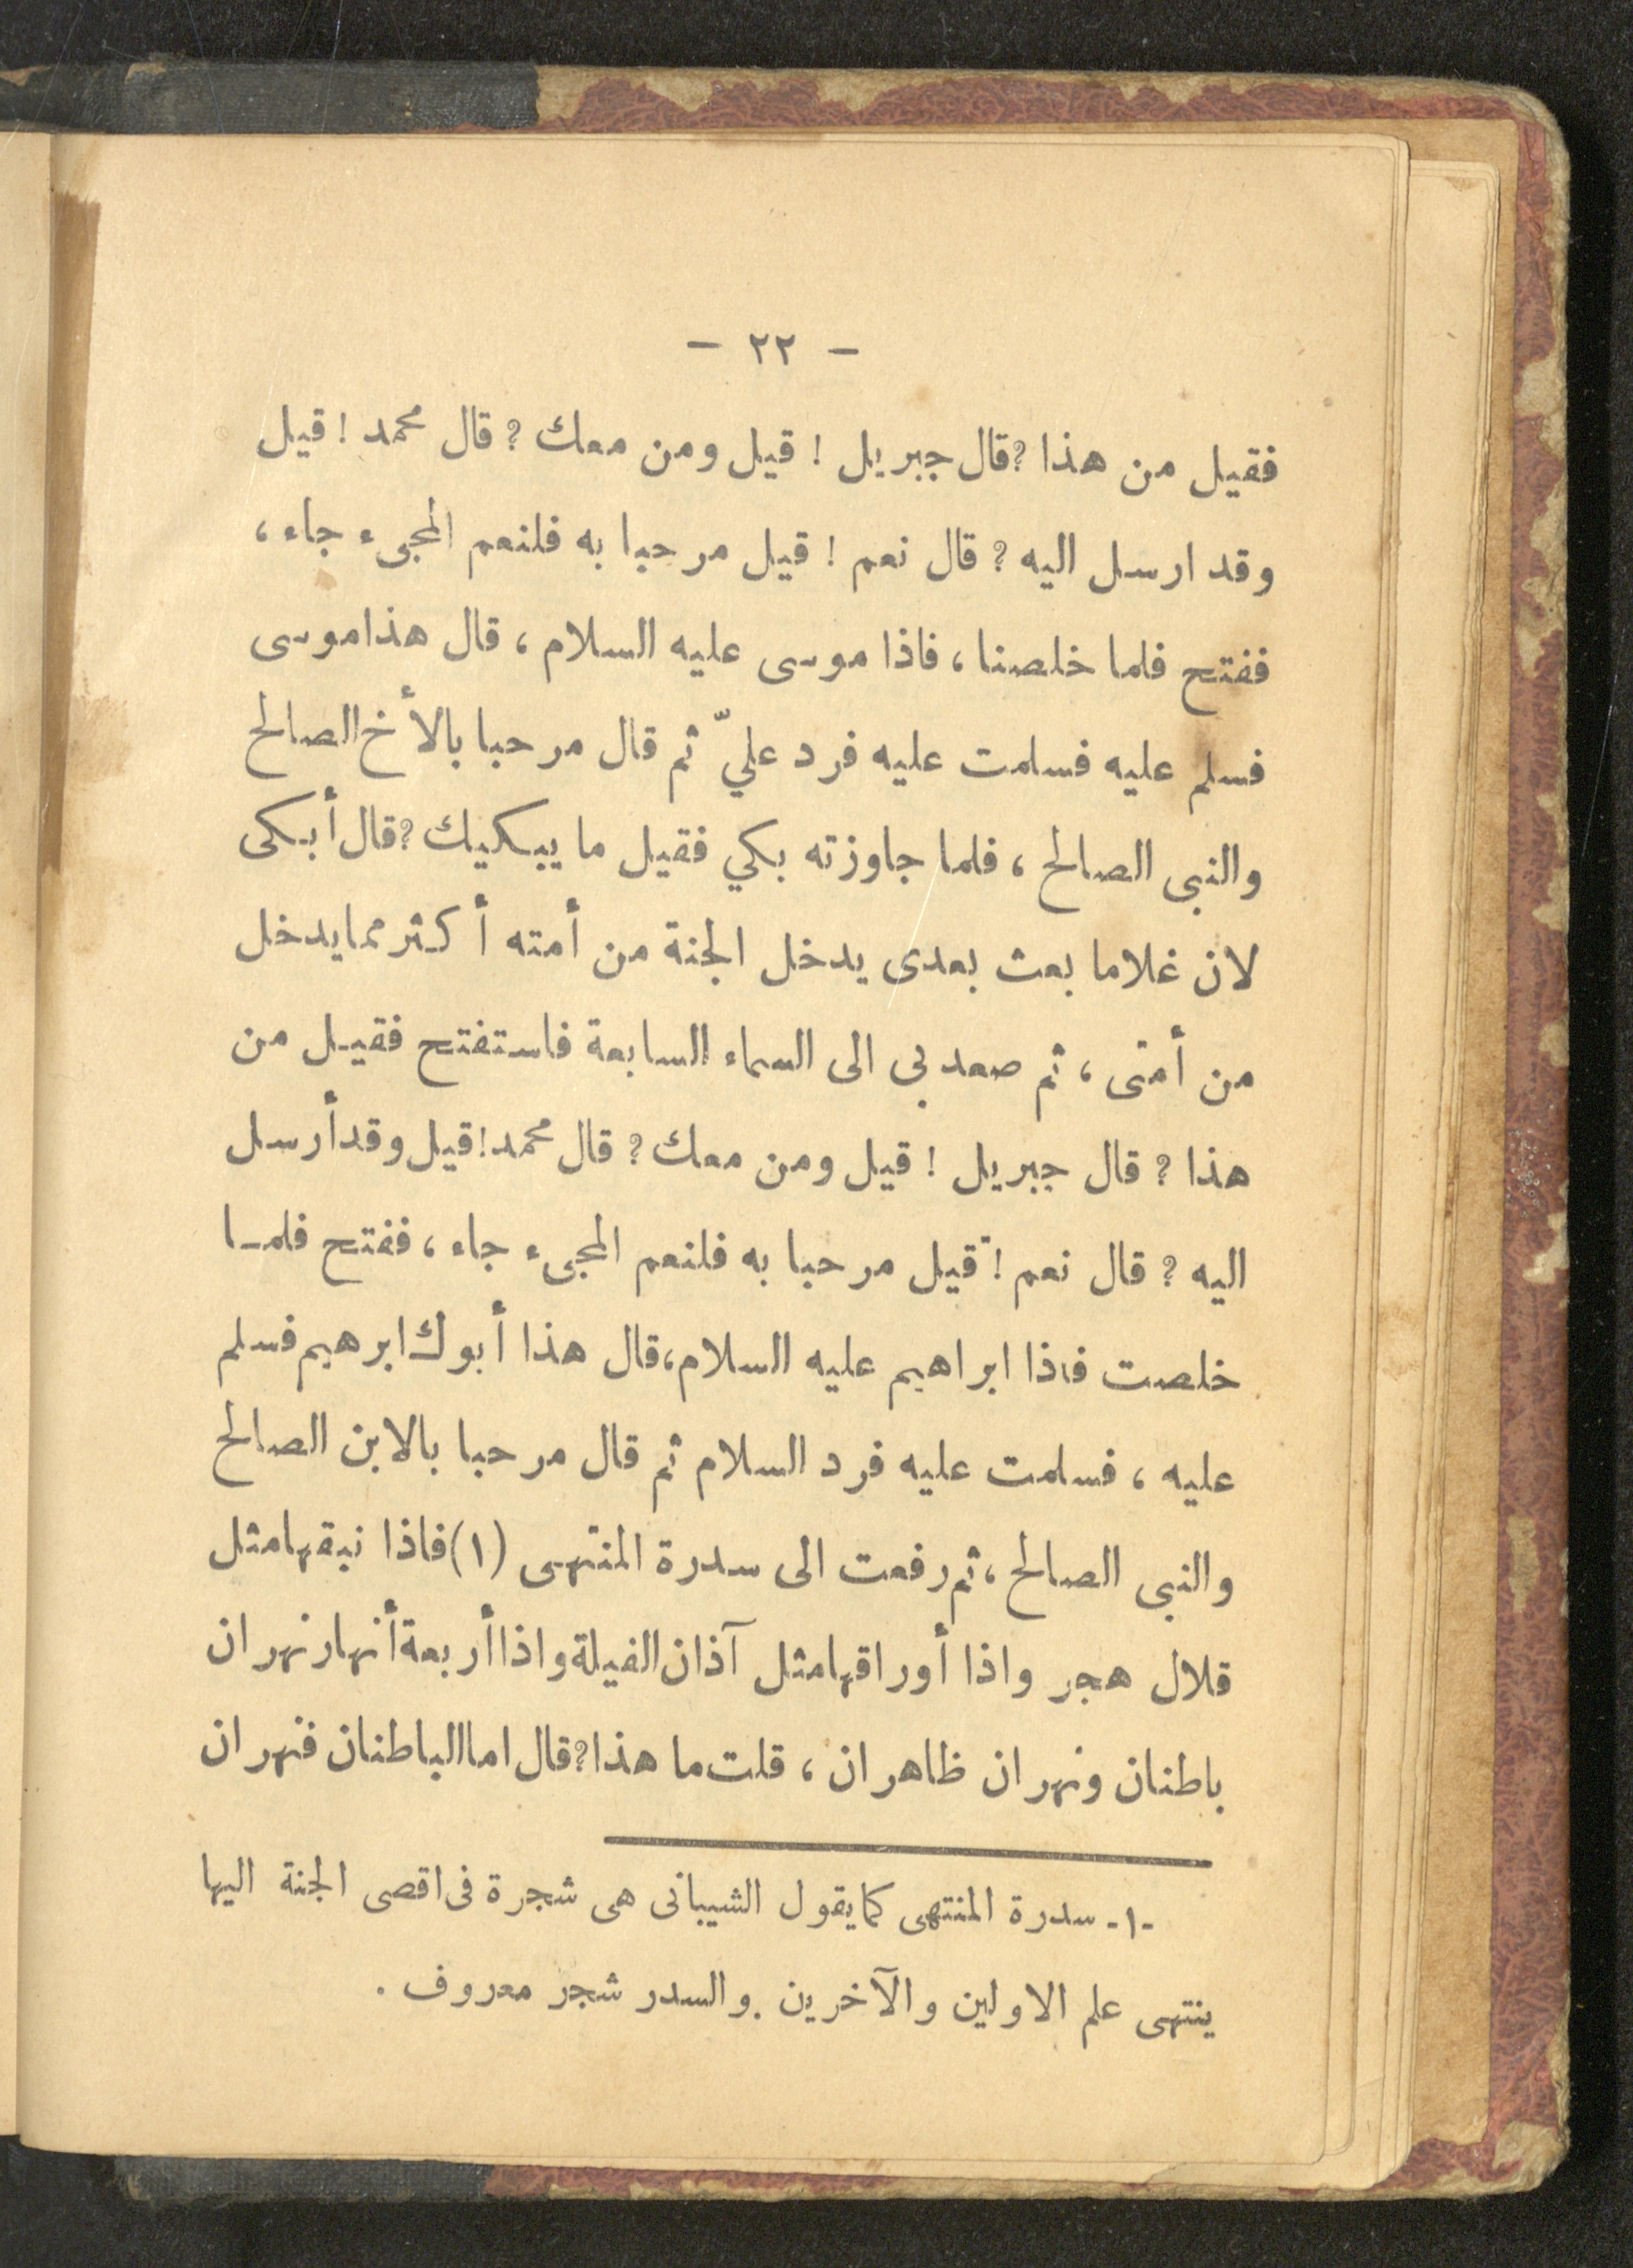 – ٢٢ –
فقيل من هذا ؟ قال جبريل ! قيل ومن معك ؟ قال محمد ! قيل
وقد ارسل اليه ؟ قال نعم ! قيل مرحبا به فلنعم المجىء جاء ،
ففتح فلما خلصنا ، فاذا موسى عليه السلام ، قال هذا موسى
فسلم عليه فسلمت عليه فرد عليّ ثم قال مرحبا بالأخ الصالح
والنبى الصالح ، فلما جاوزته بكي فقيل ما يبكيك ؟ قال أبكى
لان غلاما بعث بعدى يدخل الجنة من أمته أكثر مما يدخل
من أمتى ، ثم صعد بي الى السماء السابعة فاستفتح فقيل من
هذا ؟ قال جبريل ! قيل ومن معك ؟ قال محمد ! قيل وقد أرسل
اليه ؟ قال نعم ! قيل مرحبا به فلنعم المجىء جاء ، ففتح فلما
خلصت فاذا ابراهيم عليه السلام ، قال هذا أبوك ابرهيم فسلم
عليه ، فسلمت عليه فرد السلام ثم قال مرحبا بالابن الصالح
والنبى الصالح ، ثم رفعت الى سدرة المنتهى (١) فاذا نبقها مثل
قلال هجر واذا أوراقها مثل آذان الفيلة واذا أربعة أنهار نهران
باطنان ونهران ظاهران ، قلت ما هذا ؟ قال اما الباطنان فنهران
-١- سدرة المنتهى كما يقول الشيبانى هى شجرة فى اقصى الجنة اليها
ينتهى علم الاولين والآخرين . والسدر شجر معروف .